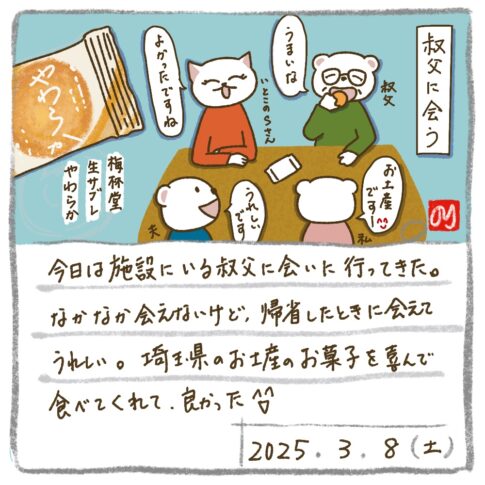 叔父に会う
叔父
うまいね
いとこのSさん
よかったですね
やわらか
梅林堂
生サブレ
やわらか
お土産
です〜
私
うれしい
です
夫
今日は施設にいる叔父に会いに行ってきた。
なかなか会えないけど、帰省したときに会えて
うれしい。埼玉県のお土産のお菓子を喜んで
食べてくれて、良かった
2025.3.8(土)